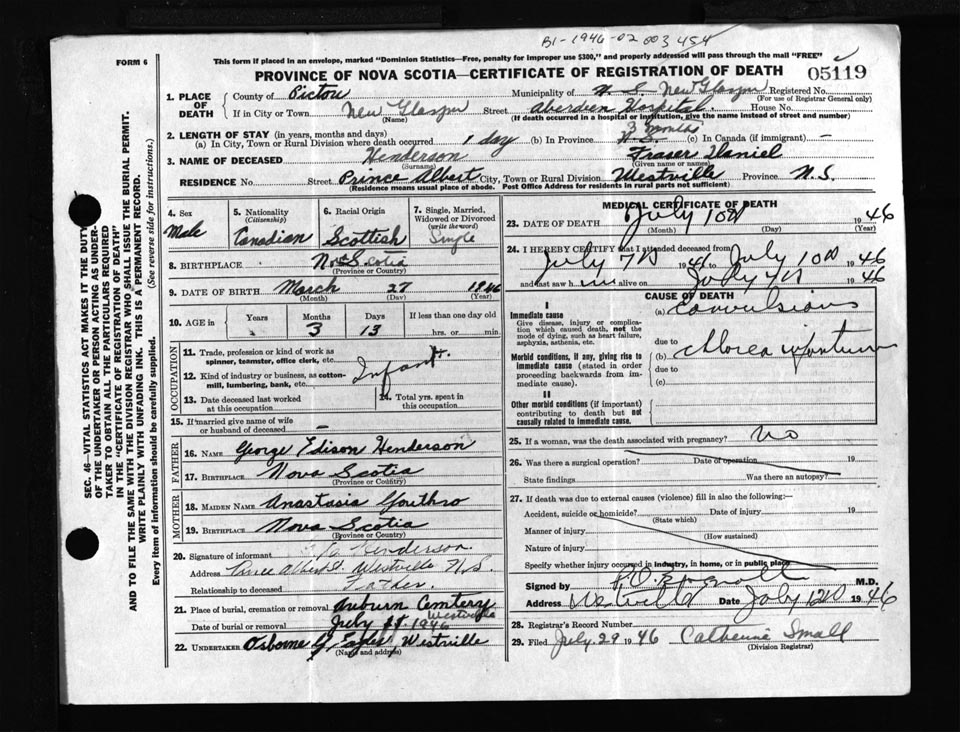 B1-1946-02 003454
FORM 6
This form if placed in an envelope, marked "Dominion Statistics—Free, penalty for improper use $300," and properly addressed will pass through the mail "FREE"
PROVINCE OF NOVA SCOTIA—CERTIFICATE OF REGISTRATION OF DEATH
05119
1. PLACE OF DEATH
County of Pictou Municipality of N.S. New Glasgow Registered No.
(For use of Registrar General only)
If in City or Town New Glasgow Street Aberdeen Hospital. House No.
(Name) (If death occurred in a hospital or institution, give the name instead of street and number)
2. LENGTH OF STAY (in years, months and days)
3 months
(a) In City, Town or Rural Division where death occurred 1 day (b) In Province N.S. (c) In Canada (if immigrant) —
3. NAME OF DECEASED Henderson Fraser Daniel
(Surname) (Given name or names)
RESIDENCE No. Street Prince Albert City, Town or Rural Division Westville Province N.S.
(Residence means usual place of abode. Post Office Address for residents in rural parts not sufficient)
4. Sex Male
5. Nationality (Citizenship) Canadian
6. Racial Origin Scottish
7. Single, Married, Widowed or Divorced (write the word) Single
8. BIRTHPLACE Nova Scotia
(Province or Country)
9. DATE OF BIRTH March 27 1946
(Month) (Day) (Year)
10. AGE in Years Months Days If less than one day old
3 13 hrs. or min.
OCCUPATION
11. Trade, profession or kind of work as spinner, teamster, office clerk, etc.
12. Kind of industry or business, as cotton-mill, lumbering, bank, etc.
Infant.
13. Date deceased last worked at this occupation
14. Total yrs. spent in this occupation
15. If married give name of wife or husband of deceased —
FATHER
16. NAME George Edison Henderson
17. BIRTHPLACE Nova Scotia
(Province or Country)
MOTHER
18. MAIDEN NAME Anastasia Youthro
19. BIRTHPLACE Nova Scotia
(Province or Country)
20. Signature of informant Henderson.
Address Prince Albert St. Westville N.S.
Relationship to deceased Father.
21. Place of burial, cremation or removal Auburn Cemtery Westville
Date of burial or removal July 11 1946
22. UNDERTAKER Osborne Westville
(Name and address)
MEDICAL CERTIFICATE OF DEATH
23. DATE OF DEATH July 10th 1946
(Month) (Day) (Year)
24. I HEREBY CERTIFY that I attended deceased from
July 7th 1946 to July 10th 1946
and last saw him alive on July 1946
CAUSE OF DEATH
I
Immediate cause
Give disease, injury or complication which caused death, not the mode of dying, such as heart failure, asphyxia, asthenia, etc.
(a) Convulsions
due to
Morbid conditions, if any, giving rise to immediate cause (stated in order proceeding backwards from immediate cause).
(b) infantum
due to
(c)
II
Other morbid conditions (if important) contributing to death but not causally related to immediate cause.
25. If a woman, was the death associated with pregnancy? No
26. Was there a surgical operation? Date of operation 19
State findings Was there an autopsy?
27. If death was due to external causes (violence) fill in also the following:—
Accident, suicide or homicide? Date of injury 19
(State which)
Manner of injury
(How sustained)
Nature of injury
Specify whether injury occurred in industry, in home, or in public place
Signed by M.D.
Address Westville Date July 12th 1946
28. Registrar's Record Number
29. Filed July 29 1946 Catherine Small
(Division Registrar)
SEC. 46—VITAL STATISTICS ACT MAKES IT THE DUTY
OF THE UNDERTAKER OR PERSON ACTING AS UNDER-
TAKER TO OBTAIN ALL THE PARTICULARS REQUIRED
IN THE "CERTIFICATE OF REGISTRATION OF DEATH"
AND TO FILE THE SAME WITH THE DIVISION REGISTRAR WHO SHALL ISSUE THE BURIAL PERMIT.
WRITE PLAINLY WITH UNFADING INK. THIS IS A PERMANENT RECORD.
Every item of information should be carefully supplied. (See reverse side for instructions.)